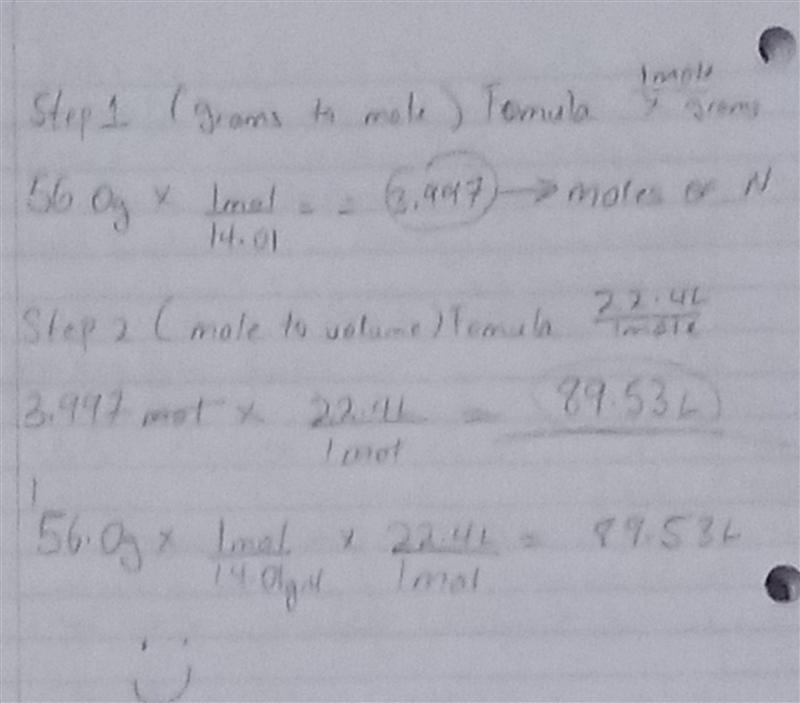 Step 1 (grams to mole) Fomula 1mole / x grams
56.0g x 1mol / 14.01 = = 3.997 → moles of N
Step 2 (mole to volume) Fomula 22.4L / 1mole
3.997 mol x 22.4L / 1mol = 89.53L
56.0g x 1mol / 14.01g N x 22.4L / 1mol = 89.53L